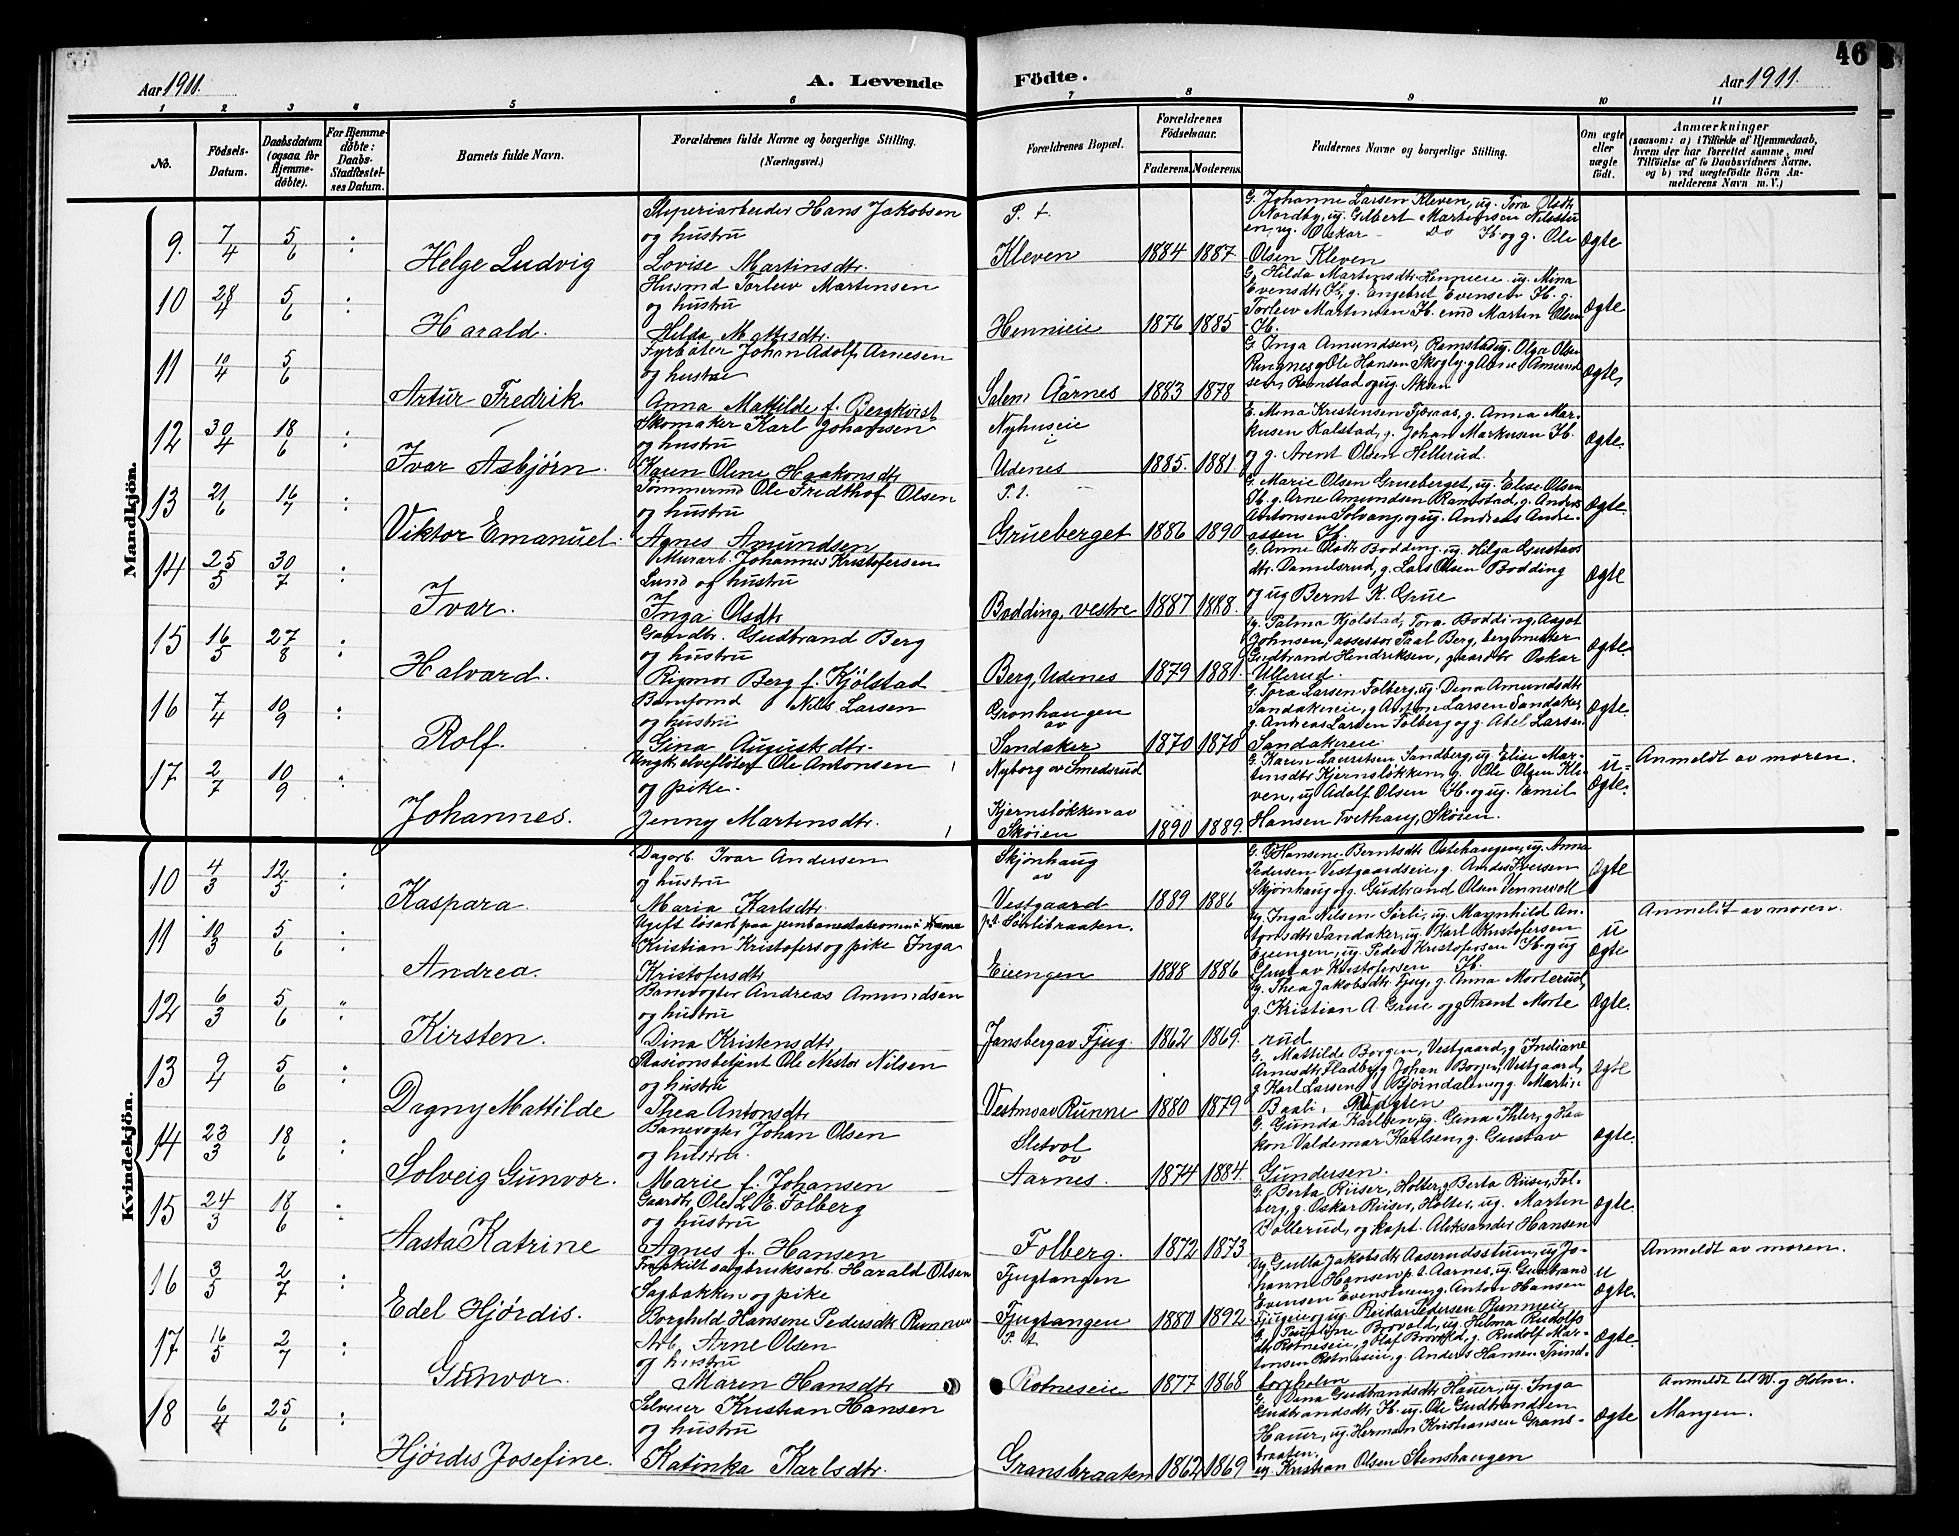 46
Aar 1911.
A. Levende Födte.
Aar 1911.
1 2 3 4 5 6 7 8 9 10 11
No.
Födsels-Datum.
Daabsdatum (ogsaa for Hjemmedöbte).
For Hjemmedöbte: Daabs-Stadfæstelses Datum.
Barnets fulde Navn.
Forældrenes fulde Navne og borgerlige Stilling. (Næringsvei.)
Forældrenes Bopæl.
Forældrenes Födselsaar.
Faderens. Moderens.
Faddernes Navne og borgerlige Stilling.
Om ægte eller uægte födt.
Anmærkninger
(saasom: a) i Tilfælde af Hjemmedaab, hvem der har forrettet samme, med Tilföielse af to Daabsvidners Navne, og b) ved uægtefödte Börn Anmelderens Navn m. V.)
Mandkjön.
9. 7/4 5/6 Helge Ludvig
Sliperiarbeider Hans Jakobsen
og hustru
Lovise Martinsdtr.
P. t.
Kleven 1884 1887
G. Johanne Larsen Kleven, ug. Tora Olsdtr.
Nordby, ug. Gilbert Martinsen
ug. Oskar Do og g. Ole
Olsen Kleven
Ægte
10 28/4 5/6 Harald.
Husmd Torleiv Martinsen
og hustru
Hilda Mattisdtr.
Hennieie 1876 1885
G. Hilda Martinsdtr. Hennieie ug. Mina
Evensdtr. g. Engebret Evensen
Torleiv Martinsen Martin Olsen
Ægte
11 10/4 5/6 Artur Fredrik
Fyrböter Johan Adolf Arnesen
og hustru
Anna Matilde f. Bergkvist
Salem Aarnes 1883 1878
G. Inga Amundsen, Ramstad ug. Olga Olsen
Ringnes g Ole Hansen Skogly g Arne Amundsen, Ramstad og ug.
Ægte
12 30/4 18/6 Ivar Asbjørn.
Skomaker Karl Johansen
og hustru
Karen Oline Haakonsdtr
Nyhuseie
i
Udenes 1885. 1881.
Mina Kristensen g. Anna Markusen Kalstad, g. Johan Markusen
og g. Arent Olsen Hellerud.
Ægte.
13 21/6 16/7 Viktor Emanuel.
Tømmermd Ole Fridthof Olsen
og hustru
Agnes Amundsen
P. t.
Grueberget 1886 1890
G. Marie Olsen Grueberget, ug. Elise Olsen
g. Arne Amundsen Ramstad, g. Anders
Antonsen Solvang, og ug. Andreas Andreassen
Ægte.
14 25/5 30/7 Ivar.
Murarb. Johannes Kristofersen
Lund og hustru
Inga Olsdtr
Bodding, vestre 1887 1888.
G. Anne Olsdtr Bodding, ug. Helga Gustavsdtr. Damelsrud, g. Lars Olsen Bodding
og ug Bernt K. Grue
Ægte
15 16/5 27/8 Halvard.
Gaardbr. Gudbrand Berg
og hustru
Rigmor Berg f. Kjölstad
Berg, Udenes 1879 1881.
ug. Palma Kjölstad, Tora Bodding, Aagot
Johnsen, assessor Paal Berg, bergmester
Gudbrand Hendriksen, gaardbr Oskar
Ullerud.
Ægte.
16 7/4 10/9 Rolf.
Nils Larsen
og hustru
Gina Augustsdtr.
Grønhaugen
av
Sandaker 1870 1870
G. Tora Larsen Folberg, ug. Dina Amundsdtr.
Sandakereie, g Anton Larsen Sandaker,
g. Andreas Larsen Folberg og g. Abel Larsen
Sandakereie.
Ægte.
17 2/7 10/9 Johannes.
Ungk elvefløter Ole Antonsen
og pike.
Jenny Martinsdtr.
Nyborg av Smedsrud
Kjernsløkken av
Skøien 1890 1889.
G. Karen Lauritsen Sandberg, ug. Elise Martinsdtr. Kjernsløkken, g. Ole Olsen Kleven, ug Adolf Olsen og ug. Emil
Hansen Tvethaug, Skøien.
u-ægte.
Anmeldt av moren.
Kvindekjön.
10 4/3 12/5 Kaspara.
Dagarb. Ivar Andersen
og hustru
Maria Karlsdtr.
Skjønhaug
av
Vestgaard 1889 1886
G. Hansine Berntsdtr. Østehaugen, ug. Anna
Pedersen Vestgaardseie, g. Anders Iversen
Skjønhaug og g. Gudbrand Olsen Vennevoll
Ægte
11 10/3 5/6 Andrea.
Ugift løsarb paa jernbanestationen i
Kristian Kristofers og pike Inga
Kristofersdtr
p.t. Sørlibraaten.
Eiengen 1888 1886
ug. Inga Nilsen Sørli, ug. Magnhild Antonsdtr Sandaker, ug. Karl Kristofersen
Eiengen, ug. Peder Kristofersen og ug
Gustav Kristofersen
u ægte
Anmeldt av moren.
12 6/3 5/6 Kirsten.
Banevogter Andreas Amundsen
og hustru
Dina Kristensdtr.
Jansberg av Fjug. 1862 1869.
ug. Thea Jakobsdtr. Fjug, g. Anna Morterud,
g. Kristian A. Grue og g Arent Morterud
Ægte.
13 9/4 5/6 Dagny Mattilde
Stasionsbetjent Ole Nestor Nilsen
og hustru
Thea Antonsdtr
Vestmo av Runni 1880 1879
G. Mattilde Borgen, Vestgaard, g Indiane
Arnesdtr. Fladberg, Johan Borgen, Vestgaard,
g Karl Larsen, Bjørndalen og g. Martin
Ægte
14 23/3 18/6 Solveig Gunvor.
Banevogter Johan Olsen
og hustru.
Marie f. Johansen
Sletvol
av
Aarnes. 1874 1884
G. Gunda Karlsen, ug. Gina Ihler, g Haakon Valdemar Karlsen, g. Gustav
Gundersen.
Ægte.
15 24/3 18/6 Aasta Katrine
Gaardbr. Ole L. E. Folberg
og hustru
Agnes f. Hansen
Folberg. 1872 1873
G. Berta Riiser, Holter, g Berta Riiser, Folberg, g. Oskar Riiser, Holter, ug. Marten
Bollerud, og kapt. Aleksander Hansen
Ægte.
16 3/5 2/7 Edel Hjørdis.
Fraskilt sagbruksarb. Harald Olsen
Sagbakken og pike
Borghild Hansine Pedersdtr Runni
Fjugtangen
Fjugtangen 1880 1892
ug. Gulla Jakobsdtr Aaserudsstuen, ug Johanne Hansen p. t. Aarnes, ug. Gudbrand
Evensen g. Anton Hansen
Fjugeie og ug. Reidar Pedersen Runnieie
u ægte.
Anmeldt av moren.
17 16/5 2/7 Gunvor.
Arb. Arne Olsen
og hustru
Maren Hansdtr
P. t.
Rotneseie 1877 1868
G. Pauline Brovald, ug. Helma Rudolfsdtr Rotneseie, g Olaf Brovold, g. Rudolf Martinsen Rotneseie, g. Anders Hansen
Ægte.
18 6/4 25/6 Hjørdis Josefine.
Selveier Kristian Hansen
og hustru
Katinka Karlsdtr.
Gransbraaten 1862 1869
G. Dina Gudbrandsdtr Hauer, ug. Inga
Gudbrandsdtr. ug. Ole Gudbrandsen
Hauer, ug. Herman Kristiansen Gransbraaten.
ug Kristian Olsen Stenshaugen
Ægte
Anmeldt til W. g Holm.
Mangen.